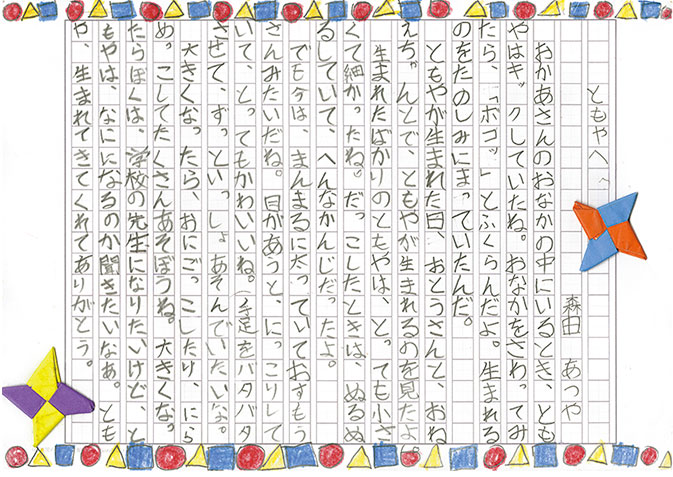 ともやへ
森田 あつや
おかあさんのおなかの中にいるとき、とも
やはキックしていたね。おなかをさわってみ
たら、「ポコッ」とふくらんだよ。生まれる
のをたのしみにまっていたんだ。
ともやが生まれた日、おとうさんと、おね
えちゃんとで、ともやが生まれるのを見たよ。
生まれたばかりのともやは、とっても小さ
くて細かったね。だっこしたときは、ぬるぬ
るしていて、へんなかんじだったよ。
でも今は、まんまるに太っていておすもう
さんみたいだね。目があうと、にっこりして
いて、とってもかわいいね。手足をバタバタ
させて、ずっといっしょあそんでいたいな。
大きくなったら、おにごっこしたり、にら
めっこしてたくさんあそぼうね。大きくなっ
たらぼくは、学校の先生になりたいけど、と
もやは、なにになるのか聞きたいなぁ。とも
や、生まれてきてくれてありがとう。